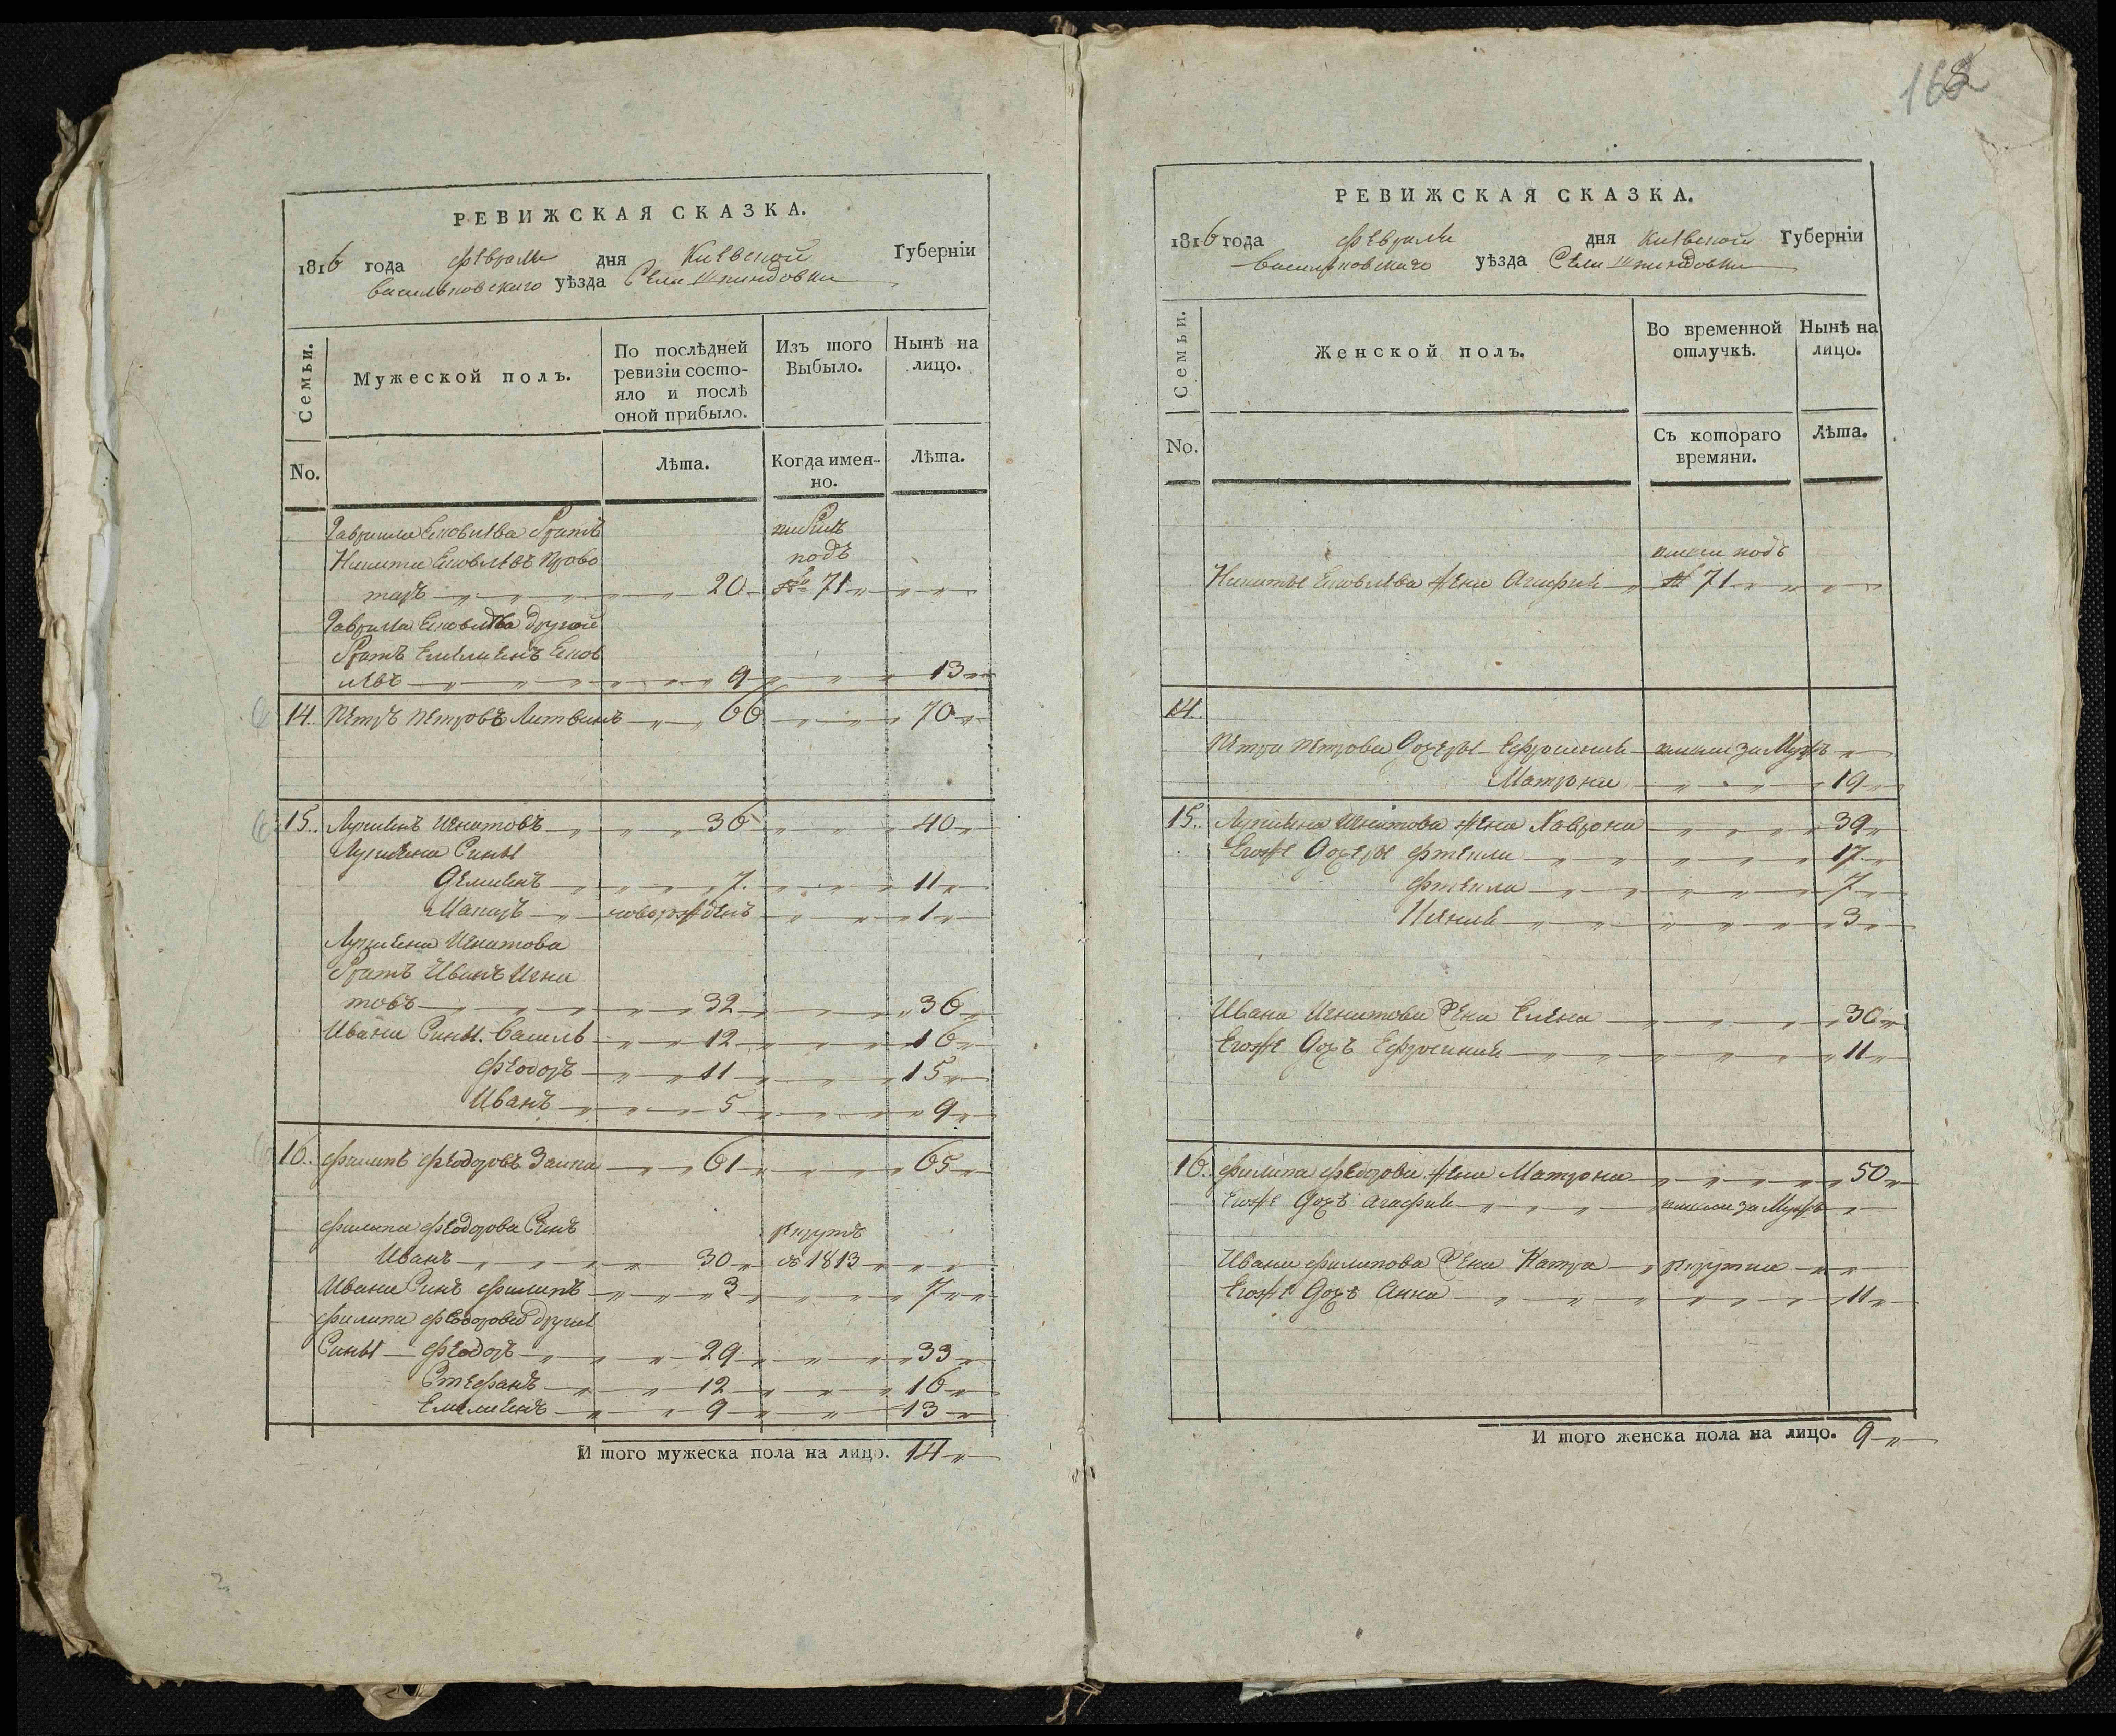 168
РЕВИЖСКАЯ СКАЗКА.
1816 года февраля дня Киевской Губерніи
васильковского уѣзда Села Шпендовки
Семьи.
Мужеской полъ.
По послѣдней ревизіи состояло и послѣ оной прибыло.
Изъ того Выбыло.
Нынѣ на лицо.
No.
Лѣта.
Когда имен-но.
Лѣта.
Гаврила Яковлева братъ
Никита Яковлевъ
20 71
подъ
Гаврила Яковлева другой
братъ Емелианъ Яков
левъ 9 13
14. Петръ Петровъ Литвинъ 66 70
15. Лукианъ Игнатовъ 36 40
Лукиана Сины
Демианъ 7. 11
Макаръ новорожденъ 1
Лукиана Игнатова
братъ Иванъ Игна
товъ 32 36
Ивана Сины. Василь 12 16
Феодоръ 11 15
Иванъ 5 9
16. Филипъ Феодоровъ Заика 61 65
Филипа Феодорова Синъ рекрутъ
Иванъ 30 въ 1813
Ивана Синъ Филипъ 3 7
Филипа Феодорова другие
Сины Феодоръ 29 33
Стефанъ 12 16
Емелианъ 9 13
И того мужеска пола на лицо. 14
РЕВИЖСКАЯ СКАЗКА.
1816 года февраля дня Киевской Губерніи
васильковскаго уѣзда Села Шпендовки
Семьи.
Женской полъ.
Во временной отлучкѣ.
Нынѣ на лицо.
No.
Съ котораго времяни.
Лѣта.
подъ
Никиты Яковлева жена Агафия 71
14.
Петра Петрова дочеры Ефросиния замужъ
Матрона 19
15. Лукиана Игнатова жена Хаврона 39
Егоже дочеры Фтекла 17
Фтекла 7
3
Ивана Игнатова жена Елена 30
Егоже дочъ Ефросиния 11
16. Филипа Федорова жена Матрона 50
Егоже дочъ Агафия замужъ
Ивана Филипова жена Катра рекрутка
Егоже дочъ Анна 11
И того женска пола на лицо. 9